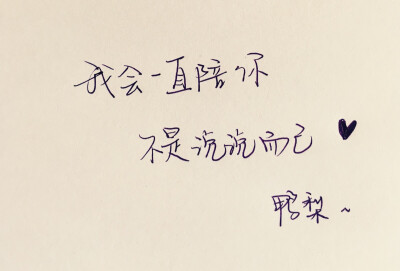 我会一直陪你
不是说说而已 ♥
鸭梨~